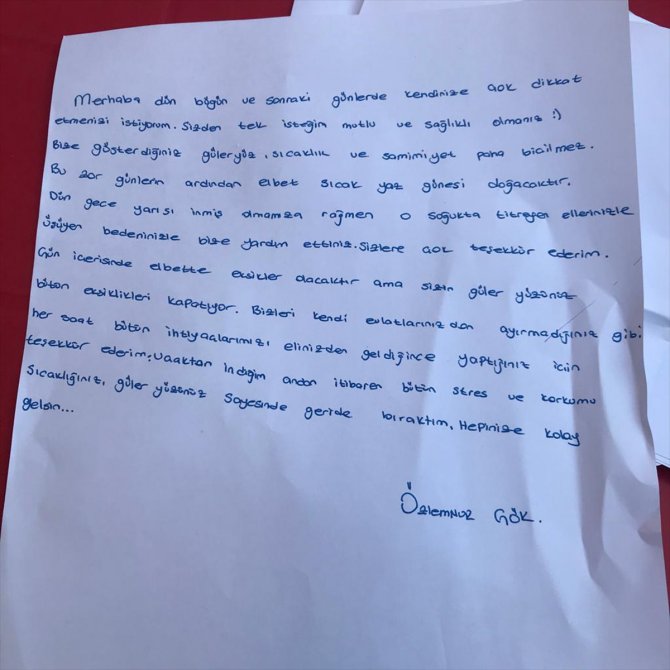 Merhaba dün bügün ve sonraki günlerde kendinize çok dikkat
etmenizi istiyorum. Sizden tek isteğim mutlu ve sağlıklı olmanız :)
Bize gösterdiğiniz güleryüz, sıcaklık ve samimiyet paha biçilmez.
Bu zor günlerin ardından elbet sıcak yaz güneşi doğacaktır.
Dün gece yarısı inmiş olmamıza rağmen o soğukta titreyen ellerinizle
üşüyen bedeninizle bize yardım ettiniz. Sizlere çok teşekkür ederim.
Gün içerisinde elbette eksikler olacaktır ama sizin güler yüzünüz
bütün eksiklikleri kapatıyor. Bizleri kendi evlatlarınızdan ayırmadığınız gibi
her saat bütün ihtiyaçlarımızı elinizden geldiğince yaptığınız için
teşekkür ederim. Uçaktan indiğim andan itibaren bütün stres ve korkumu
Sıcaklığınız, güler yüzünüz sayesinde geride bıraktım. Hepinize kolay
gelsin...
Özlemnur GÖK.